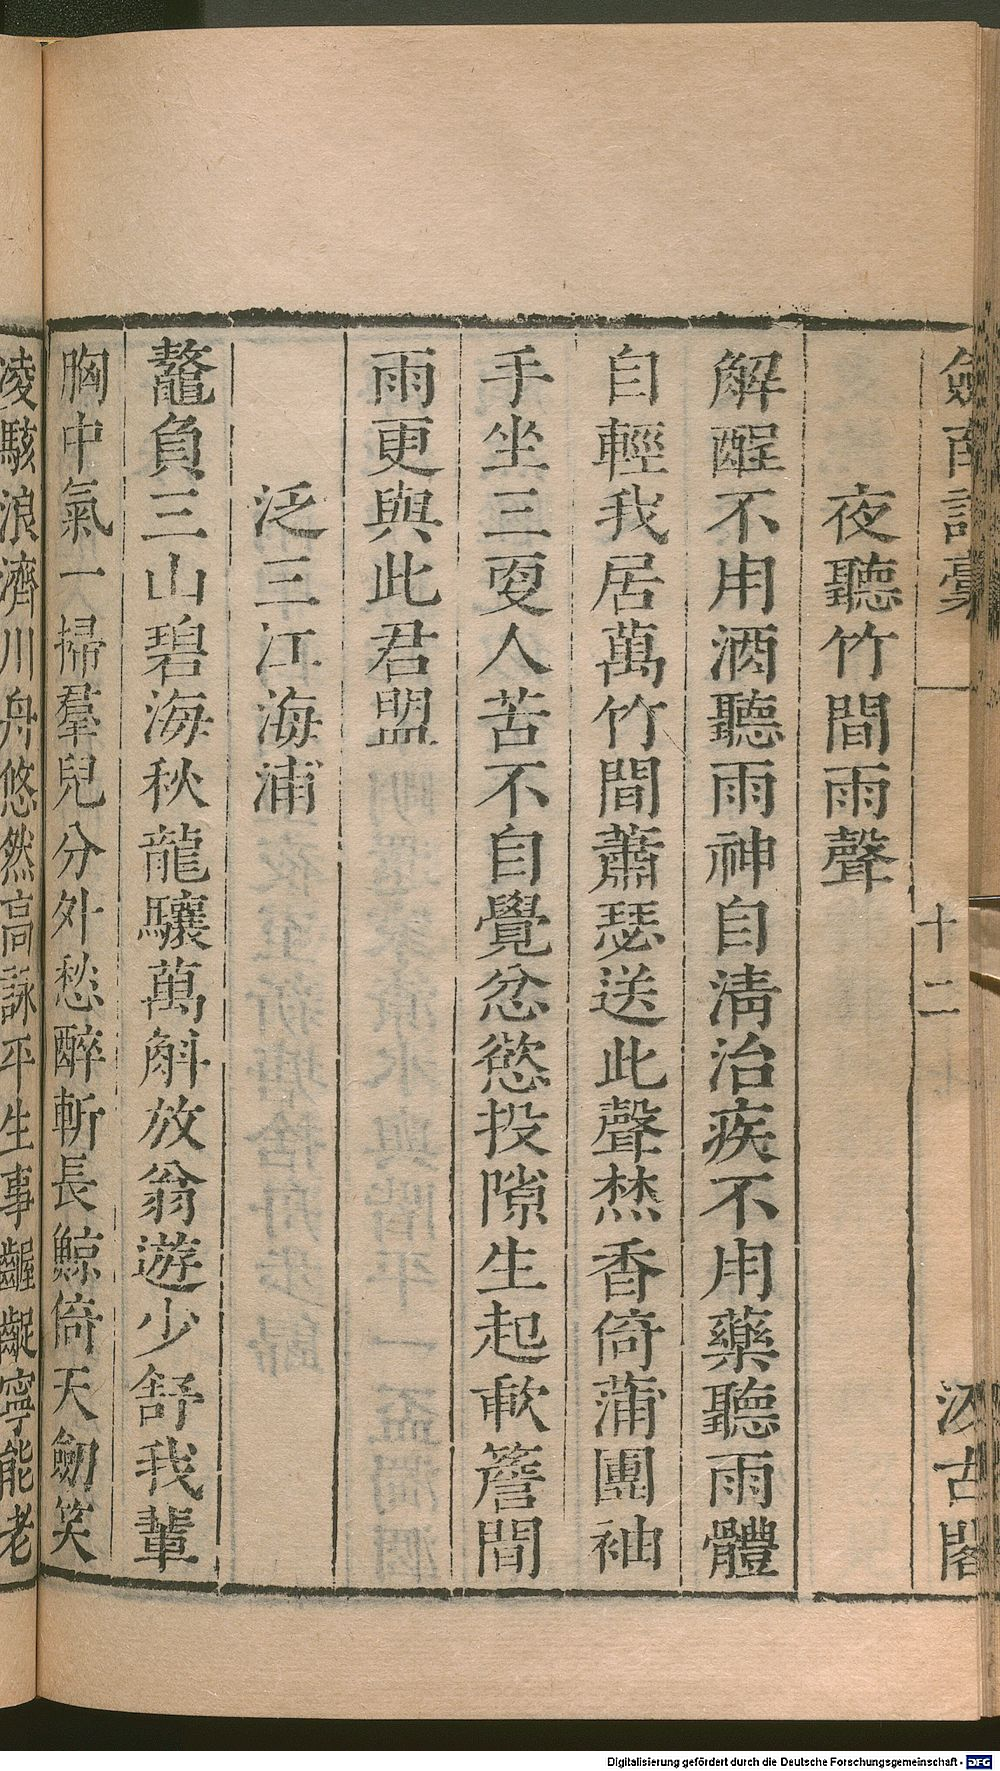 劍南詩藁
十二
汲古閣
夜聽竹間雨聲
解酲不用酒聽雨神自清治疾不用藥聽雨體
自輕我居萬竹間蕭瑟送此聲焚香倚蒲團袖
手坐三更人苦不自覺忿慾投隙生起軟簷間
雨更與此君盟
泛三江海浦
鼇負三山碧海秋龍驤萬斛放翁遊少舒我輩
胸中氣一掃羣兒分外愁醉斬長鯨倚天劒笑
凌駭浪濟川舟悠然高詠平生事齷齪寧能老
Digitalisierung gefördert durch die Deutsche Forschungsgemeinschaft - DFG